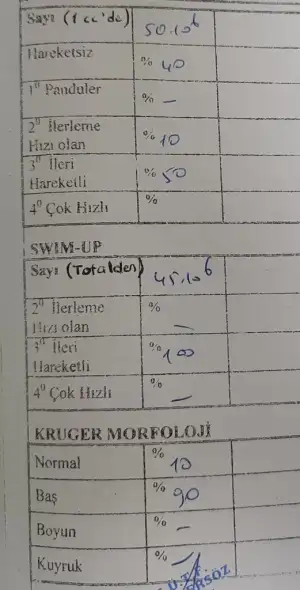 Sayı (1 cc'de) 50.10⁶
Hareketsiz % 40
1⁰ Panduler % –
2⁰ İlerleme
Hızı olan % 10
3⁰ İleri
Hareketli % 50
4⁰ Çok Hızlı %
SWIM-UP
Sayı (Totalden) 45.10⁶
2⁰ İlerleme
Hızı olan % –
3⁰ İleri
Hareketli % 100
4⁰ Çok Hızlı % –
KRUGER MORFOLOJİ
Normal % 10
Baş % 90
Boyun % –
Kuyruk % –